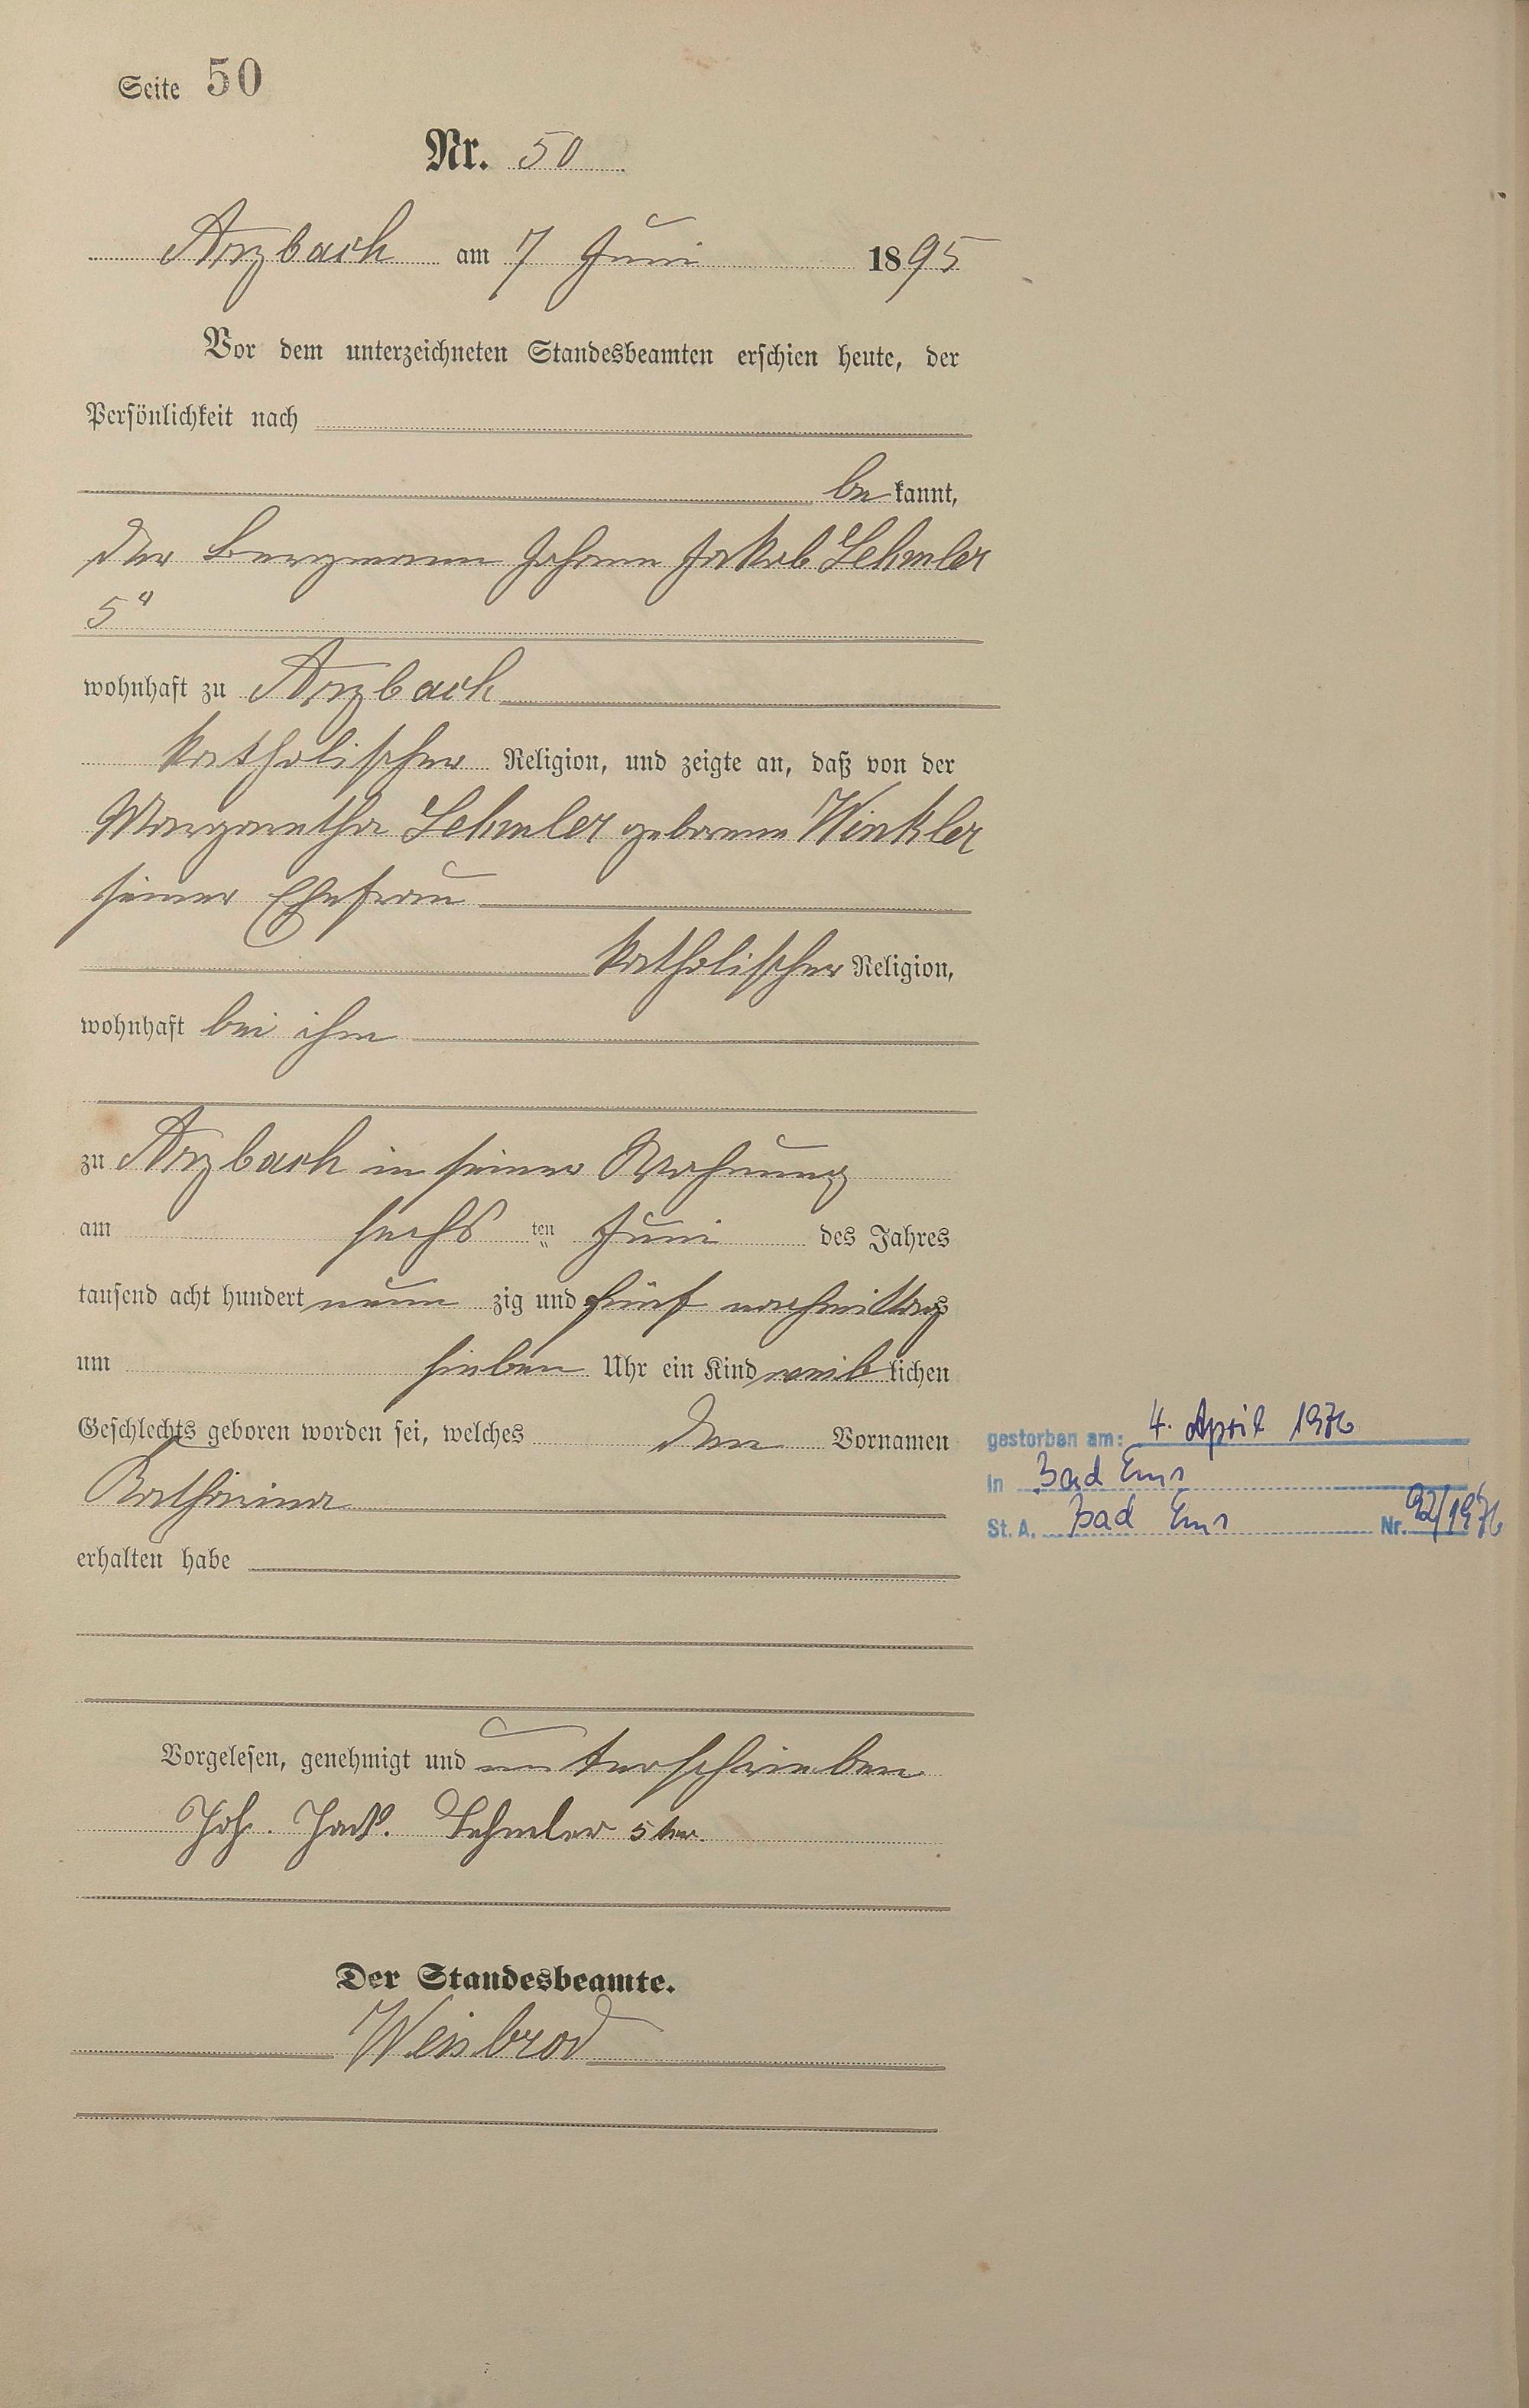 Seite 50
Nr. 50
Arzbach am 7 Juni 1895
Vor dem unterzeichneten Standesbeamten erschien heute, der
Persönlichkeit nach
bekannt,
der Bergmann Johann Jakob Lehmler
5r
wohnhaft zu Arzbach
katholischer Religion, und zeigte an, daß von der
Margaretha Lehmler geborene Winkler
seiner Ehefrau
katholischer Religion,
wohnhaft bei ihm
zu Arzbach in seiner Wohnung
am sechs ten Juni des Jahres
tausend acht hundert neunzig und fünf nachmittags
um sieben Uhr ein Kind weiblichen
Geschlechts geboren worden sei, welches den Vornamen
Katharina
erhalten habe
gestorben am: 4. April 1976
in Bad Ems
St. A. Bad Ems Nr. 92/1976
Vorgelesen, genehmigt und unterschrieben
Joh. Jak. Lehmler 5ter.
Der Standesbeamte.
Weisbrod